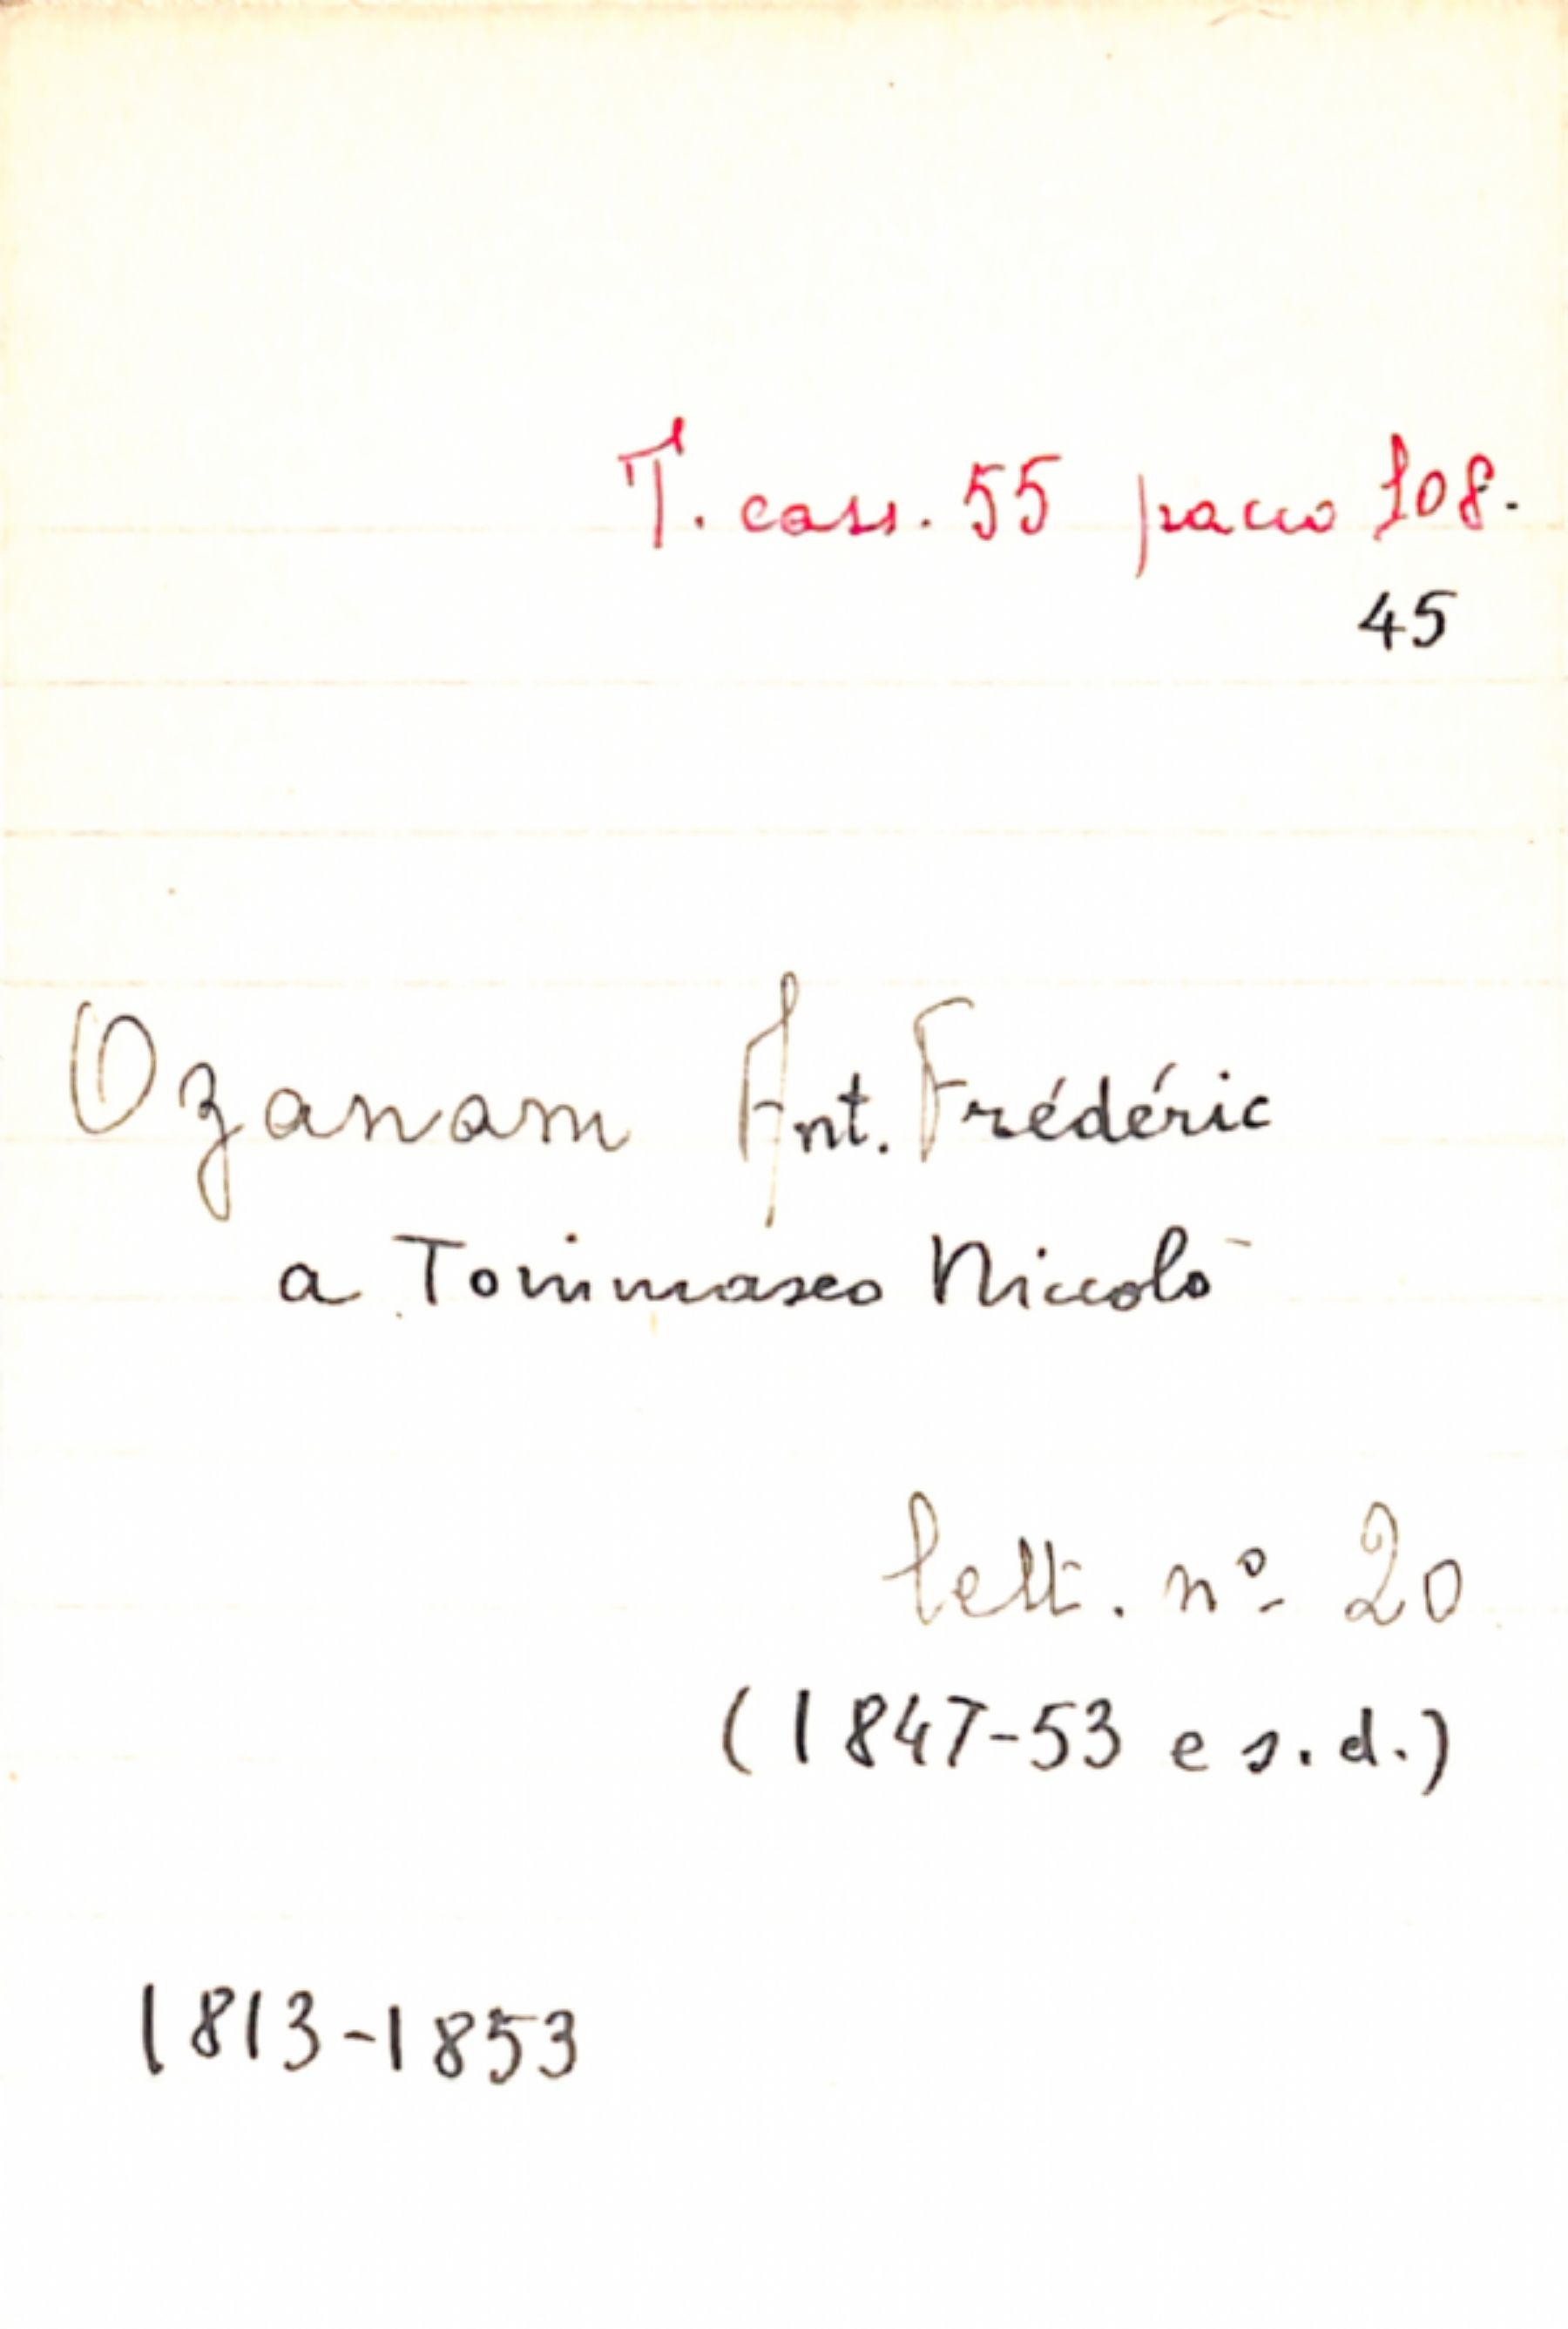 T. cass. 55 pacco 108.
45
Ozanam Ant. Frédéric
a Tommaseo Niccolò
lett. nº 20
(1847-53 e s.d.)
1813-1853